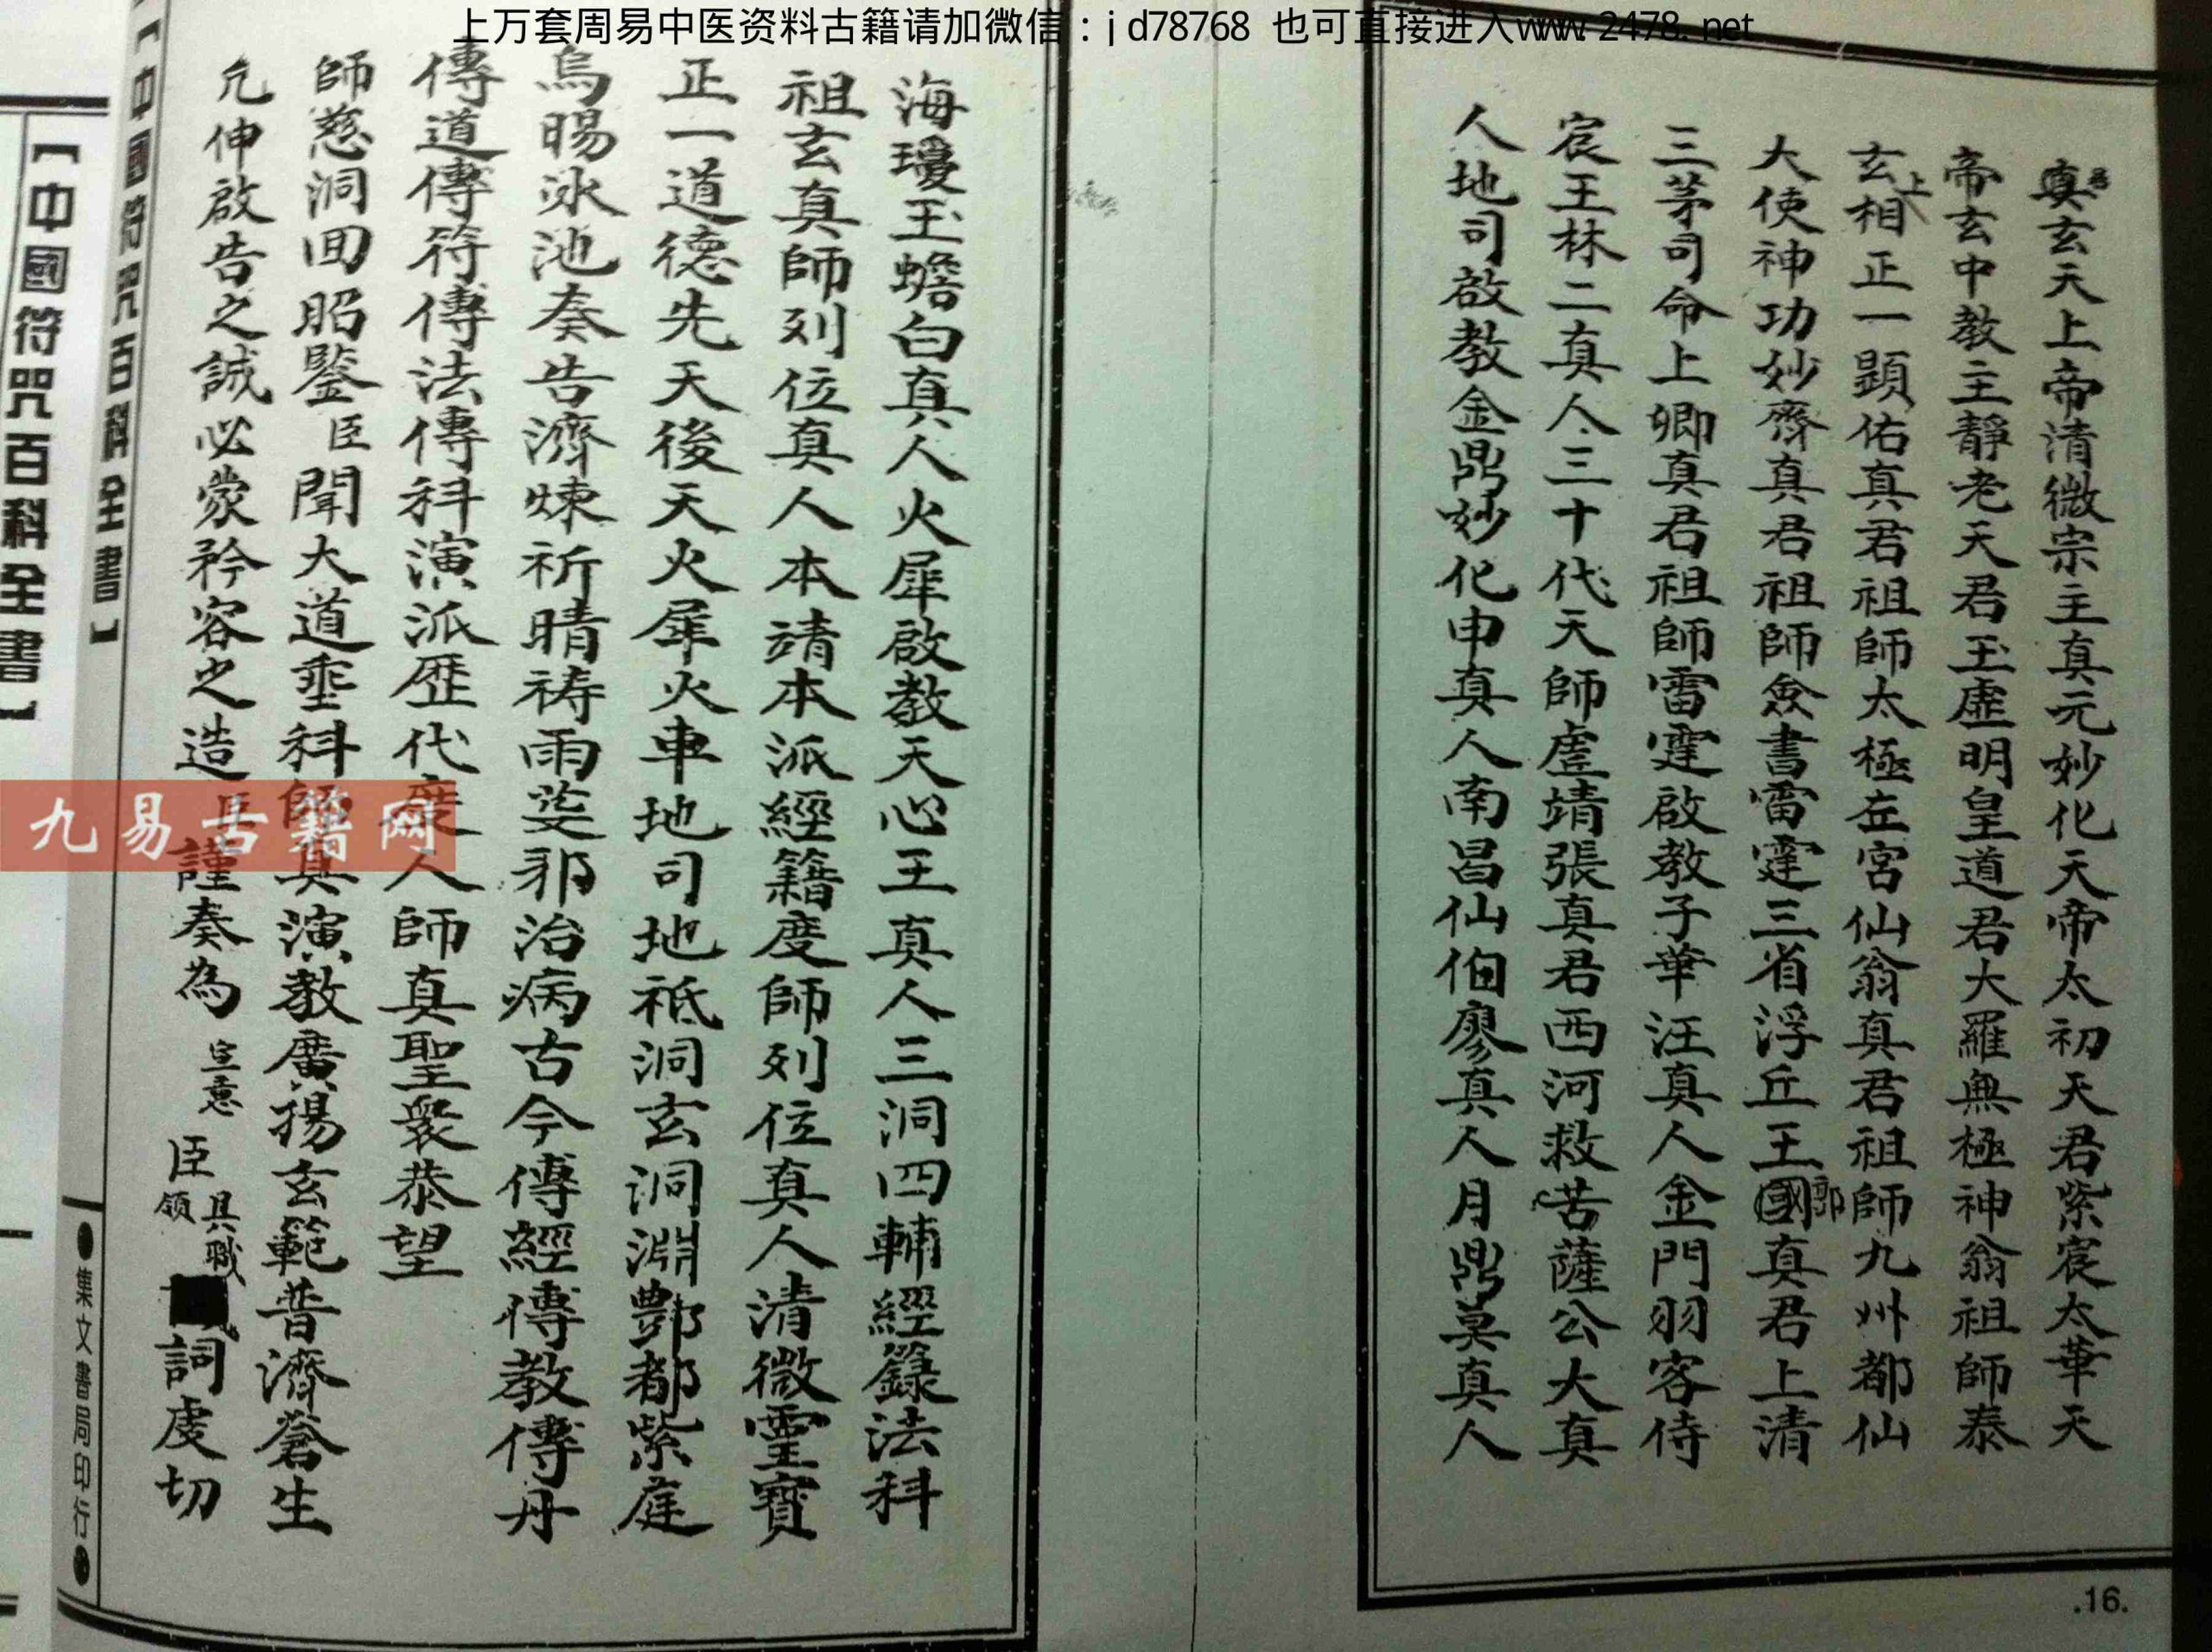 上万套周易中医资料古籍请加微信：jd78768 也可直接进入www.2478.net
真玄天上帝清微宗主真元妙化天帝太初天君紫宸太華天
帝玄中教主靜老天君玉虛明皇道君大羅無極神翁祖師泰
玄上相正一顯佑真君祖師太極左宮仙翁真君祖師九州都仙
大使神功妙齊真君祖師僉書雷霆三省浮丘王國郭真君上清
三茅司命上卿真君祖師雷霆啟教子華汪真人金門羽客侍
宸王林二真人三十代天師虛靖張真君西河救苦薩公大真
人地司啟教金鼎妙化申真人南昌仙伯廖真人月鼎莫真人
.16.
海瓊玉蟾白真人火犀啟教天心王真人三洞四輔經籙法科
祖玄真師列位真人本靖本派經籍度師列位真人清微霊寶
正一道德先天後天火犀火車地司地祇洞玄洞淵酆都紫庭
烏暘泳池奏告濟煉祈晴禱雨芟邪治病古今傳經傳教傳丹
傳道傳符傳法傳科演派歷代度人師真聖衆恭望
師慈洞回昭鑒臣聞大道垂科師真演教廣揚玄範普濟蒼生
凡伸啟告之誠必蒙矜容之造臣謹奏為 宣意 臣 具職 領 詞虔切
【中國符咒百科全書】
●集文書局印行●
【中國符咒百科全書】
九易古籍网